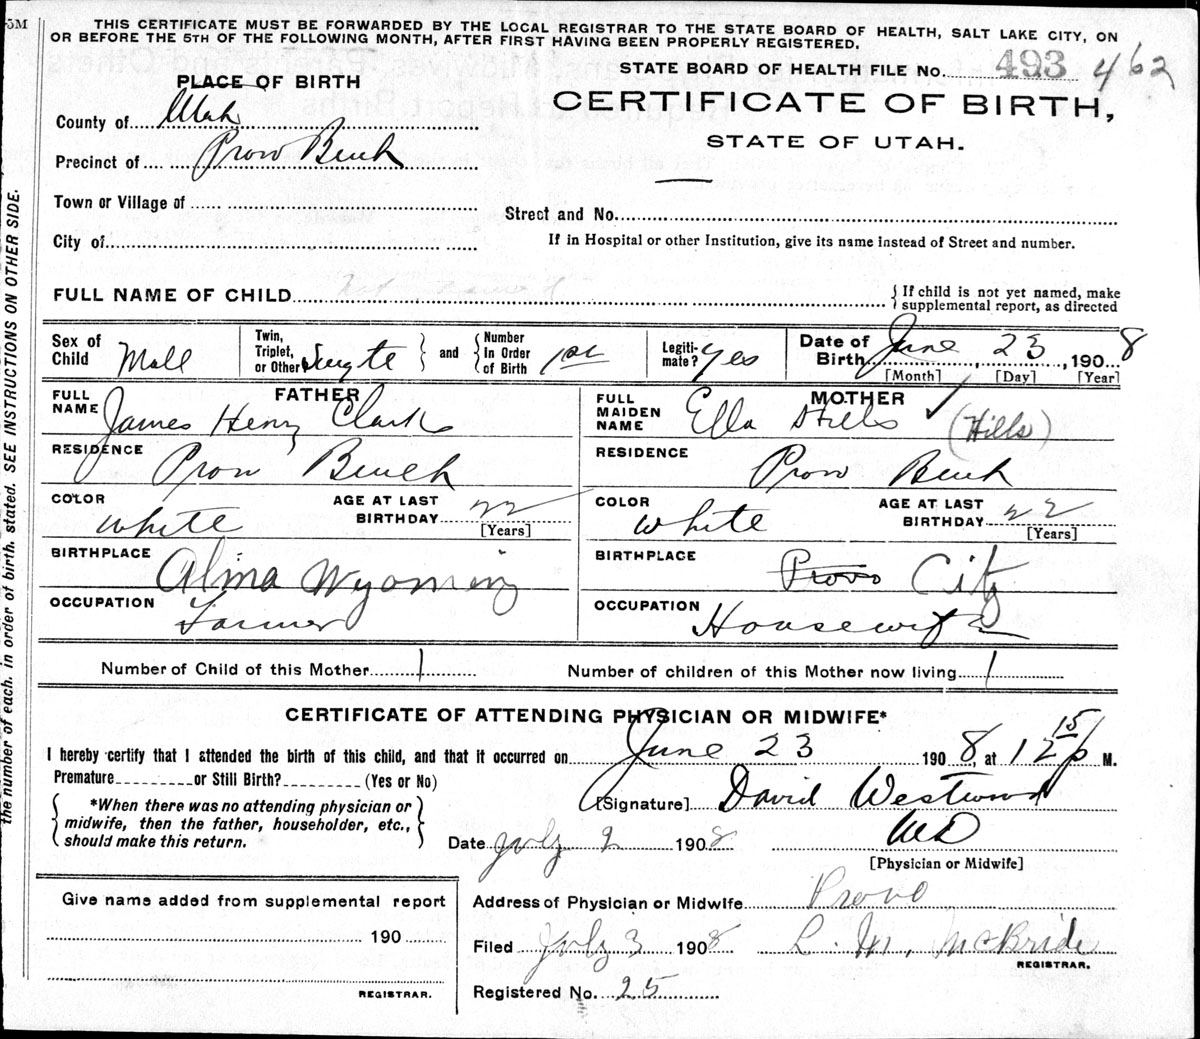 5M
THIS CERTIFICATE MUST BE FORWARDED BY THE LOCAL REGISTRAR TO THE STATE BOARD OF HEALTH, SALT LAKE CITY, ON
OR BEFORE THE 5TH OF THE FOLLOWING MONTH, AFTER FIRST HAVING BEEN PROPERLY REGISTERED.
PLACE OF BIRTH
STATE BOARD OF HEALTH FILE No. 493 462
CERTIFICATE OF BIRTH,
STATE OF UTAH.
County of Utah
Precinct of Provo Bench
Town or Village of
Street and No.
City of
If in Hospital or other Institution, give its name instead of Street and number.
FULL NAME OF CHILD Not named { If child is not yet named, make
supplemental report, as directed
Sex of Child Male
Twin, Triplet, or Other Single } and { Number In Order of Birth 1st
Legiti- mate? Yes
Date of Birth June 23, 1908
[Month] [Day] [Year]
FATHER
FULL NAME James Henry Clark
RESIDENCE Provo Bench
COLOR White AGE AT LAST BIRTHDAY 22
[Years]
BIRTHPLACE Alma Wyoming
OCCUPATION Farmer
MOTHER
FULL MAIDEN NAME Ella Hills (Hills)
RESIDENCE Provo Bench
COLOR White AGE AT LAST BIRTHDAY 22
[Years]
BIRTHPLACE Provo City
OCCUPATION Housewife
Number of Child of this Mother 1 Number of children of this Mother now living 1
CERTIFICATE OF ATTENDING PHYSICIAN OR MIDWIFE*
I hereby certify that I attended the birth of this child, and that it occurred on June 23 1908, at 12 15 P M.
Premature or Still Birth? (Yes or No)
*When there was no attending physician or
midwife, then the father, householder, etc.,
should make this return.
[Signature] David Westwood
Date July 2 1908 MD
[Physician or Midwife]
Give name added from supplemental report
190
REGISTRAR.
Address of Physician or Midwife Provo
Filed July 3 1908 L. M. McBride
REGISTRAR.
Registered No. 25
the number of each, in order of birth, stated. SEE INSTRUCTIONS ON OTHER SIDE.